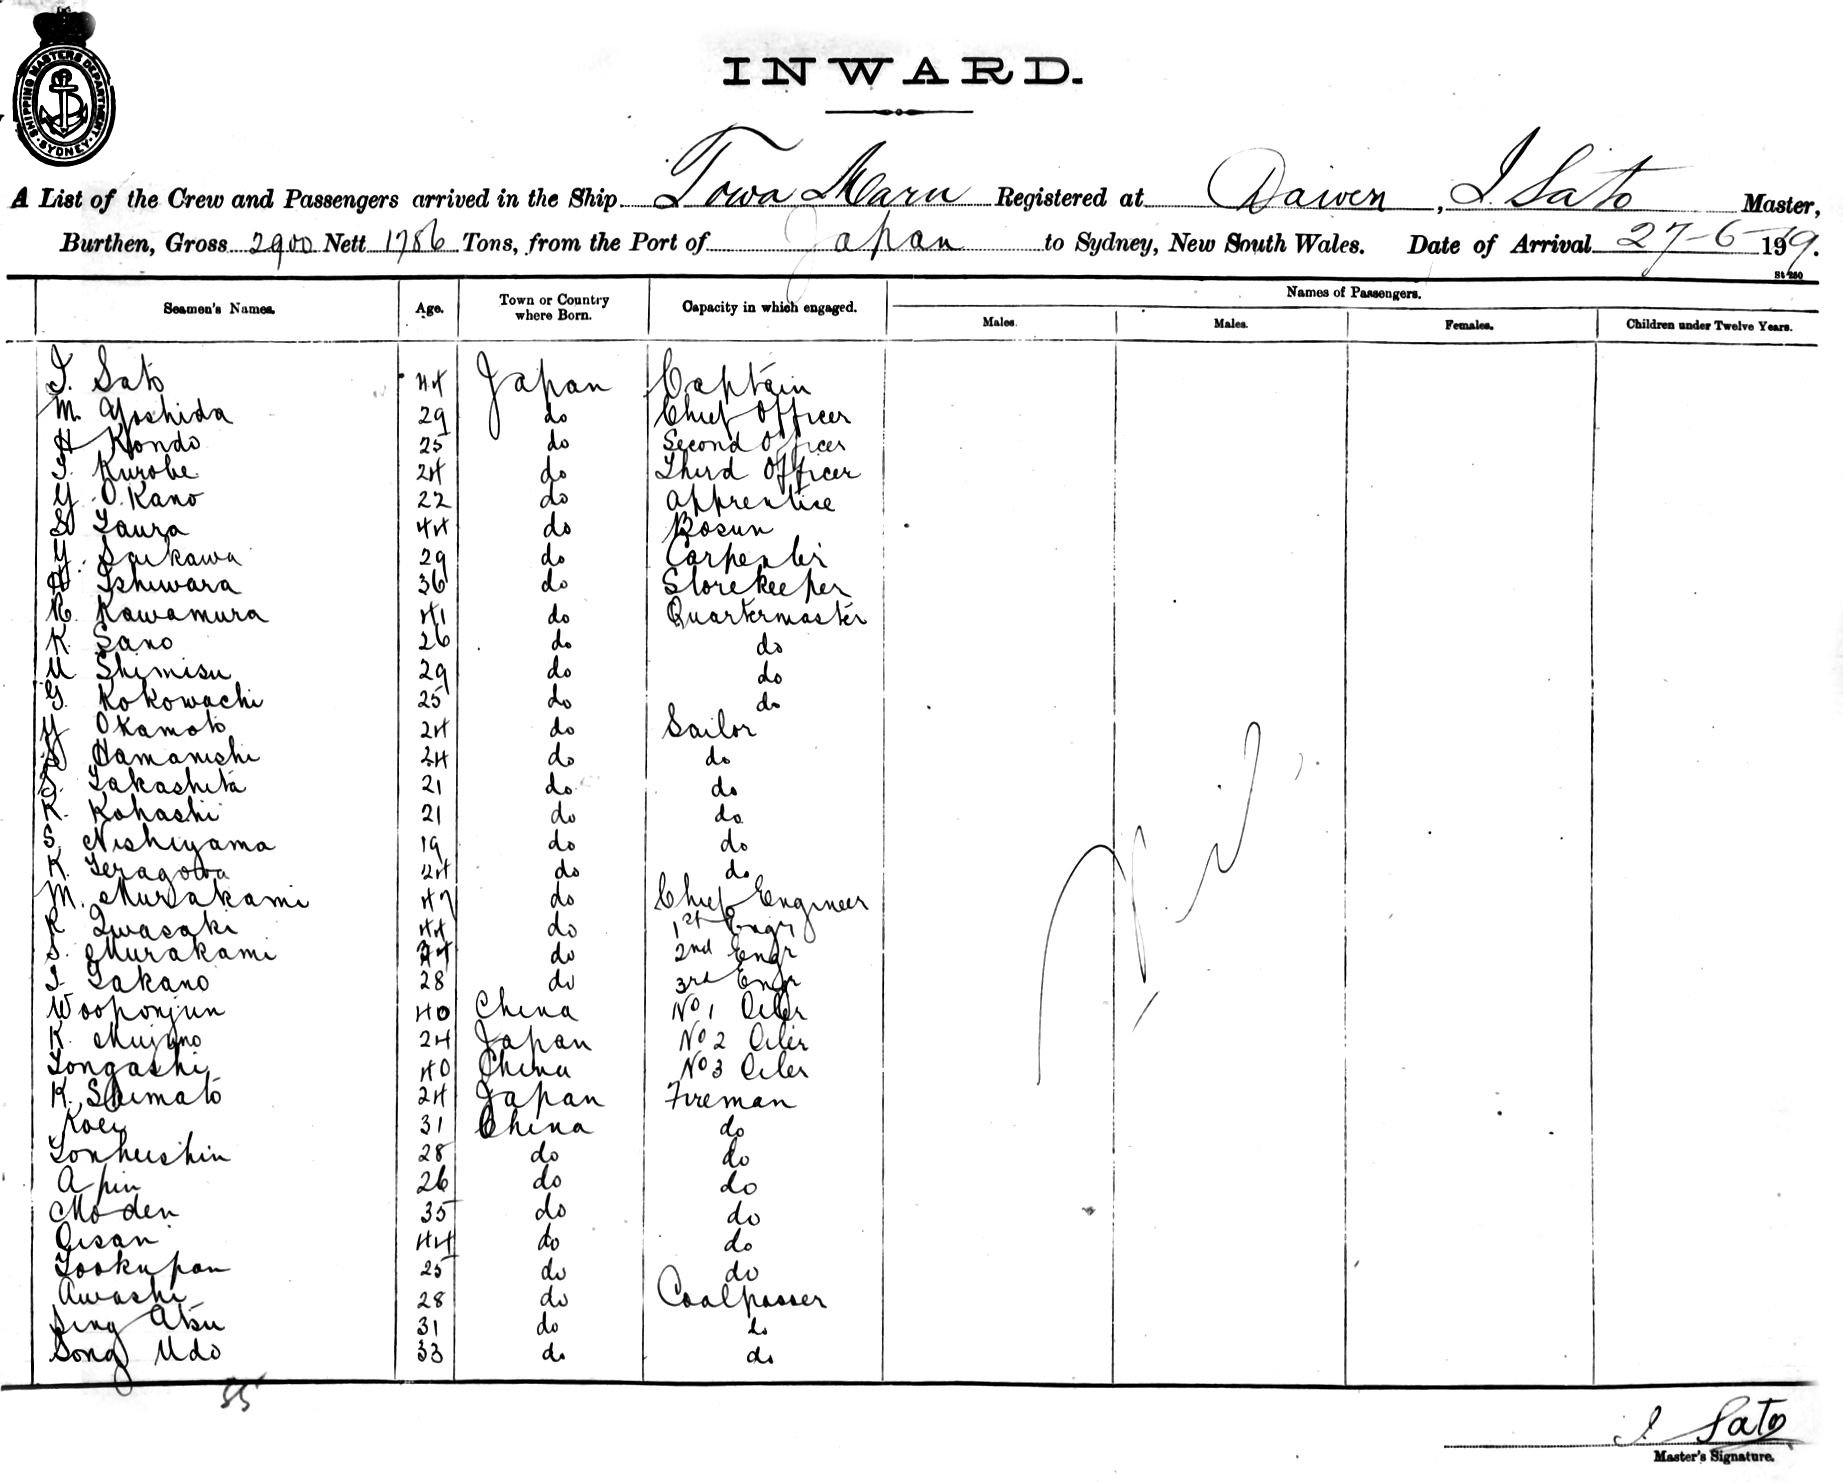 SHIPPING MASTERS DEPARTMENT
SYDNEY
INWARD.
A List of the Crew and Passengers arrived in the Ship Towa Maru Registered at Dairen, I. Sato Master,
Burthen, Gross 2900 Nett 1786 Tons, from the Port of Japan to Sydney, New South Wales. Date of Arrival 27-6-1919.
St 250
Seamen's Names. Age. Town or Country where Born. Capacity in which engaged. Names of Passengers.
Males. Males. Females. Children under Twelve Years.
I. Sato 44 Japan Captain
M. Yoshida 29 do Chief Officer
H Kondo 25 do Second Officer
I. Kurobe 24 do Third Officer
Y. Okano 22 do Apprentice
S Taura 44 do Bosun
Y. Saikawa 29 do Carpenter
Ishiwara 36 do Storekeeper
K. Kawamura 41 do Quartermaster
K Sano 26 do do
U Shimisu 29 do do
G. Kokowachi 25 do do
Y Okamoto 24 do Sailor
Hamanishi 24 do do
T. Takashita 21 do do
K. Kohashi 21 do do
S. Nishiyama 19 do do
K. Teragowa 24 do do
M. Murakami 47 do Chief Engineer
K Iwasaki 44 do 1st Engr
S. Murakami do 2nd Engr
I Takano 28 do 3rd Engr
Wooponjun 40 China No 1 Oiler
K. Mujuno 24 Japan No 2 Oiler
Tongashi 40 China No 3 Oiler
K. Shimato 24 Japan Fireman
Koei 31 China do
Tonheishin 28 do do
Apin 26 do do
Moden 35 do do
Oisan 44 do do
Tookupan 25 do do
Awashi 28 do Coalpasser
Sing Atsu 31 do do
Song Udo 33 do do
Nil
35
I. Sato
Master's Signature.